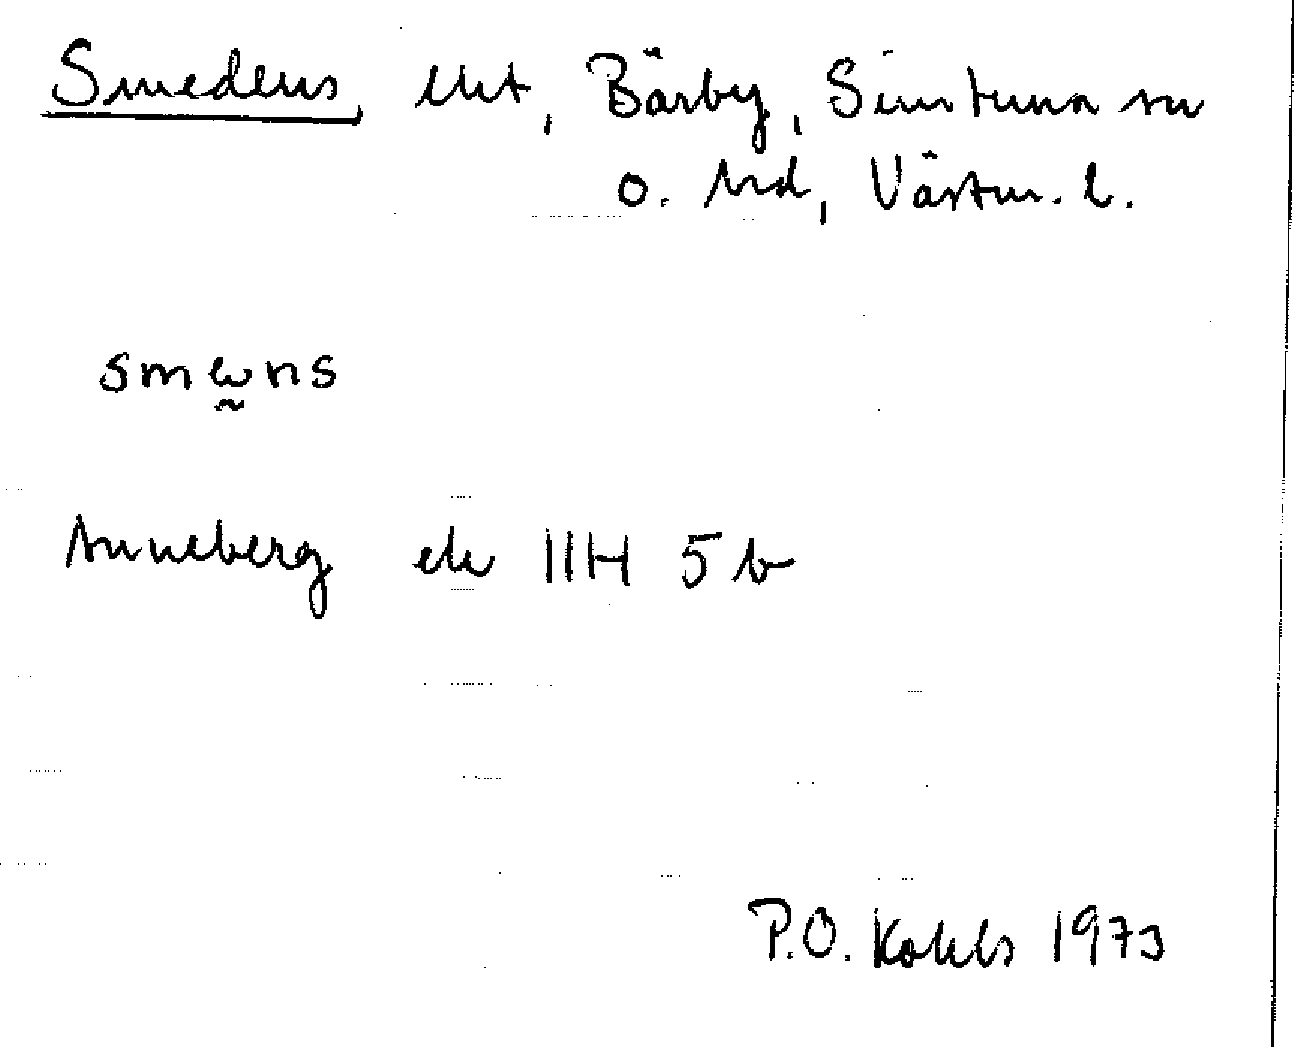 Smedens, lht, Bärby, Simtuna sn
o. hd, Västm. l.
smens
Anneberg ek 11H 5b
P.O. Kohls 1973